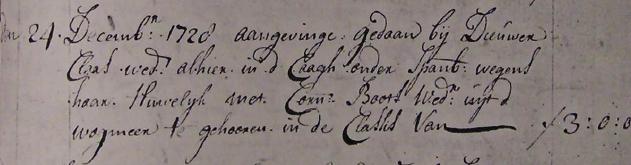 den 24. Decemb:r 1728 aangevinge gedaan bij Dieuwer
Claas wed:e alhier in d Caagh onder Spanb: wegens
haar Huwelijk met Corn: Boots Wed:r uijt d
wogmeer te gehooren in de Classis Van f 3:0:0